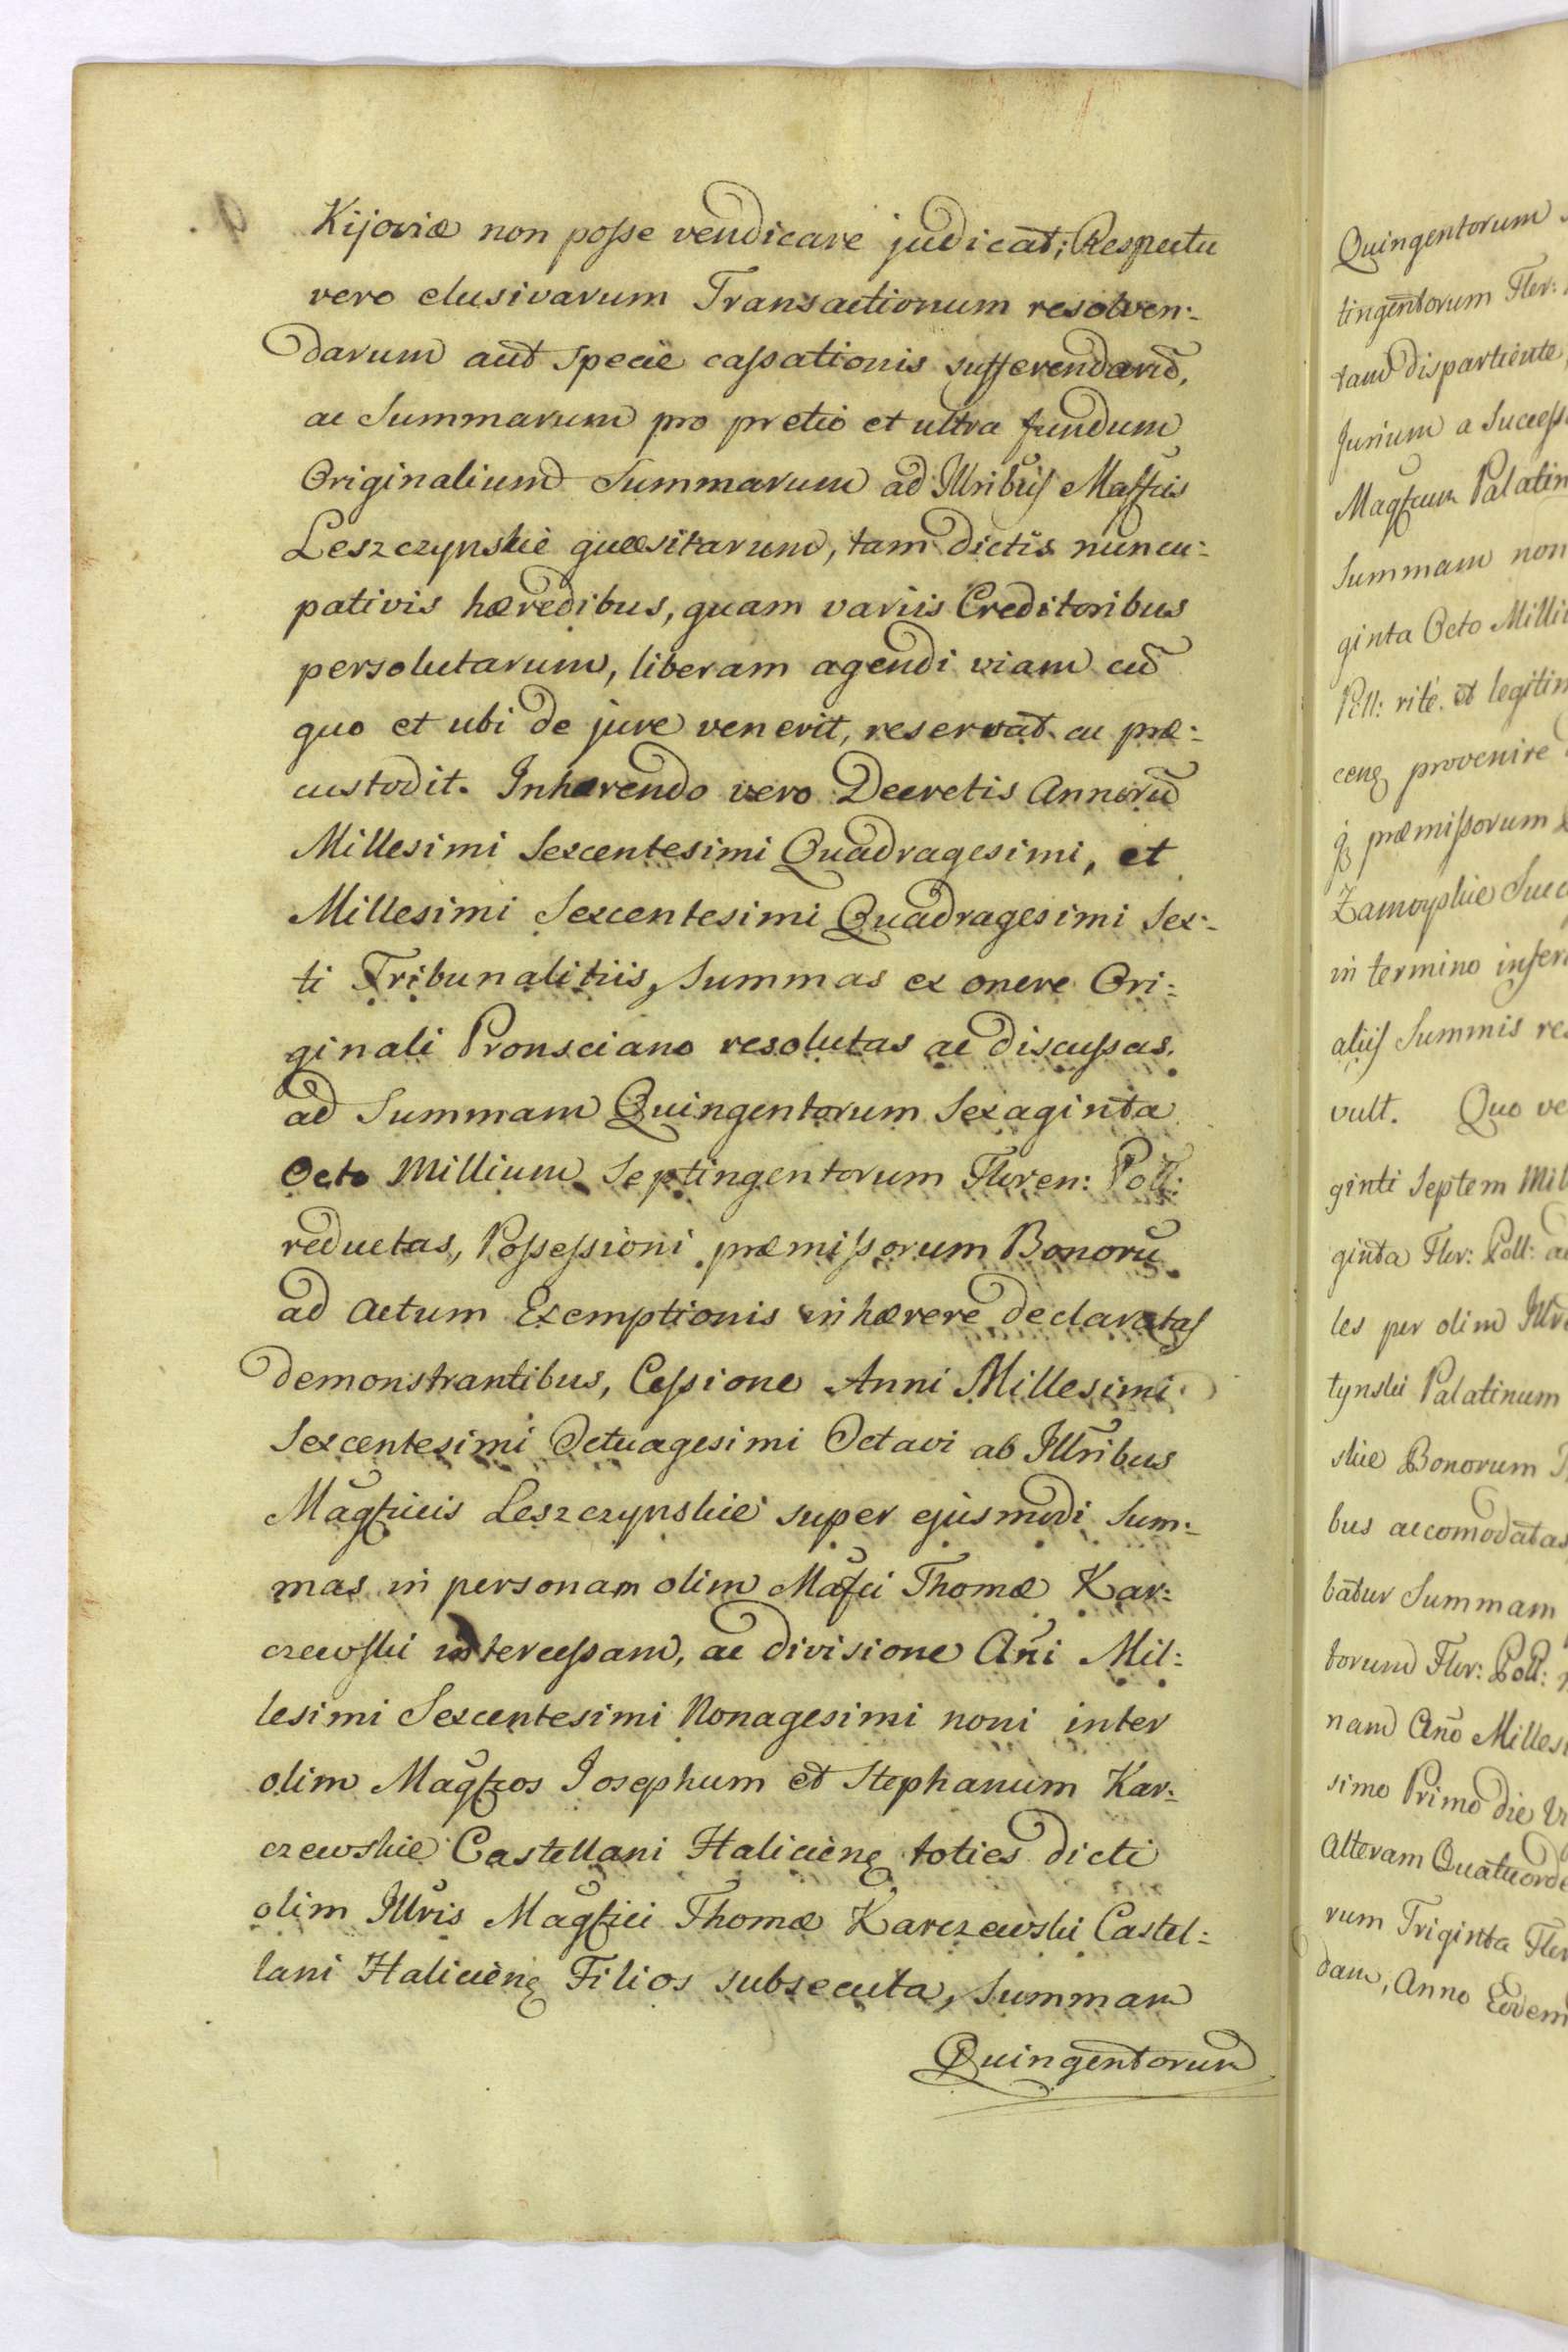 Kijoviæ non posse vendicare judicat; Respectu
vero elusivarum Transactionum resolven:
darum aut specie cassationis sufferendarū,
ac Summarum pro pretio et ultra fundum
Originalium Summarum ad Illribus Maffcis
Leszczynskie quæsitarum, tam dictis nuncu:
pativis hæredibus, quam variis Creditoribus
persolutarum, liberam agendi viam cū
quo et ubi de jure venerit, reservat ac præ:
custodit. Inhærendo vero Decretis Annorū
Millesimi Sexcentesimi Quadragesimi, et
Millesimi Sexcentesimi Quadragesimi Sex:
ti Tribunalitiis, Summas ex onere Ori:
ginali Pronsciano resolutas ac discussas,
ad Summam Quingentorum Sexaginta
Octo Millium Septingentorum Floren: Poll:
reductas, Possessioni præmissorum Bonorū
ad actum Exemptionis inhærere declaratas
demonstrantibus, Cessione Anni Millesimi
Sexcentesimi Octuagesimi Octavi ab Illribus
Magfficis Leszczynskie super ejusmodi Sum:
mas in personam olim Maffci Thomæ Kar:
czewski intercessam, ac divisione Añi Mil:
lesimi Sexcentesimi Nonagesimi noni inter
olim Magffcos Josephum et Stephanum Kar:
czewskie Castellani Halicienę toties dicti
olim Illris Magffici Thomæ Karczewski Castel:
lani Halicienę Filios subsecuta, Summam
Quingentorum
Quingentorum
tingentorum Flor:
tam dispartiente
Jurium a Success
Magffcum Palatin
Summam non
ginta Octo Milli
Poll: rité et legitim
cenę provenire
q̨ præmissorum
Zamoyskie Succ
in termino infer
aliis Summis res
vult. Quo ve
ginti Septem Mil
ginta Flor: Poll: a
les per olim Illr
tynski Palatinum
skie Bonorum
bus accomodatas
batur Summam
torum Flor: Poll:
nam Año Milles
simo Primo die V
alteram Quatuorde
rum Triginta Flor
dam, Anno Eodem